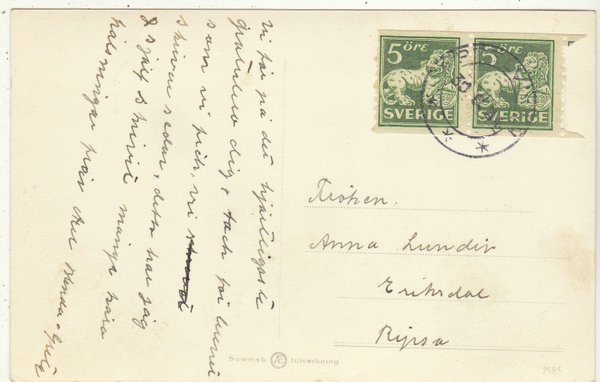 Vi få på det hjärtligaste
gratulera dig, tack för brevet
som vi fick, vi
skriver sedan, detta har jag
själv skrivit många kära
hälsningar från
5 ÖRE
SVERIGE
5 ÖRE
SVERIGE
Fröken.
Anna Lundin
Eriksdal
Ryssa
Svensk Æ tillverkning
5585